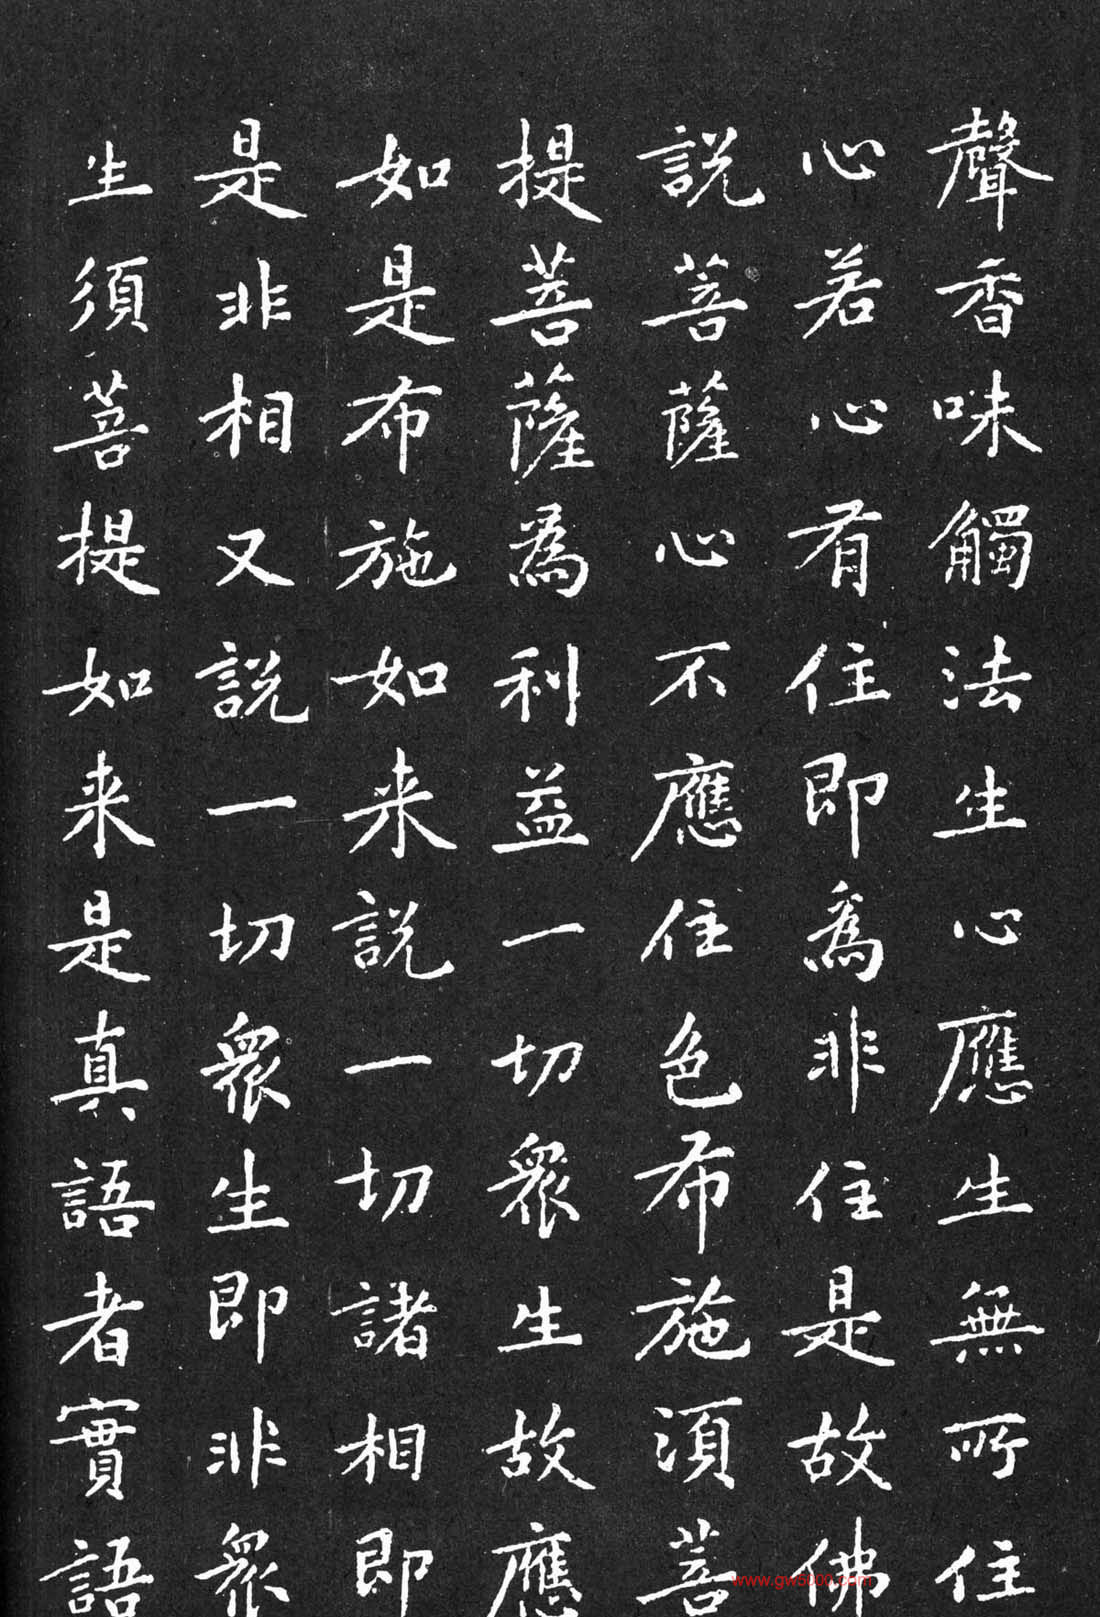 聲香味觸法生心應生無所住
心若心有住即為非住是故佛
說菩薩心不應住色布施須菩
提菩薩為利益一切眾生故應
如是布施如来說一切諸相即
是非相又說一切眾生即非眾
生須菩提如来是真語者實語
www.gw5000.com